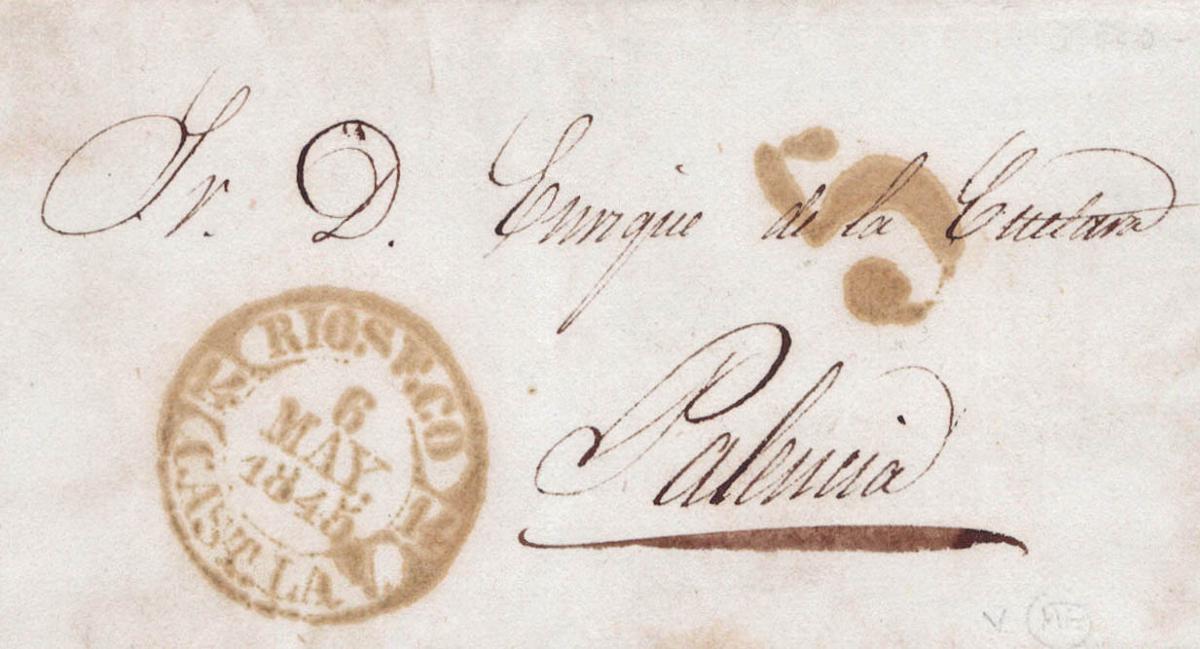 Sr. D. Enrique de la Cuetara
Palencia
RIOSECO
6
MAY.
1845
CAST.LA V.